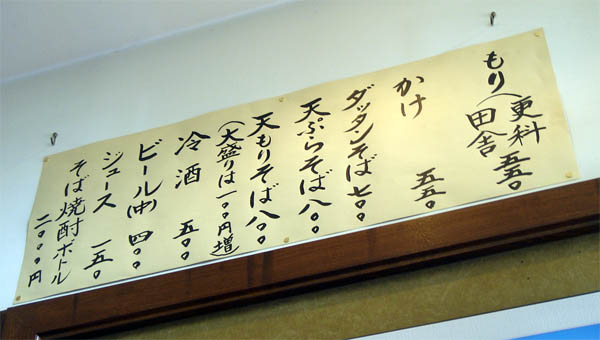 もり(更科
田舎 五五〇
かけ 五五〇
ダッタンそば 七〇〇
天ぷらそば 八〇〇
天もりそば 八〇〇
(大盛りは一〇〇円増)
冷酒 五〇〇
ビール(中) 四〇〇
ジュース 一五〇
そば焼酎ボトル
二〇〇〇円